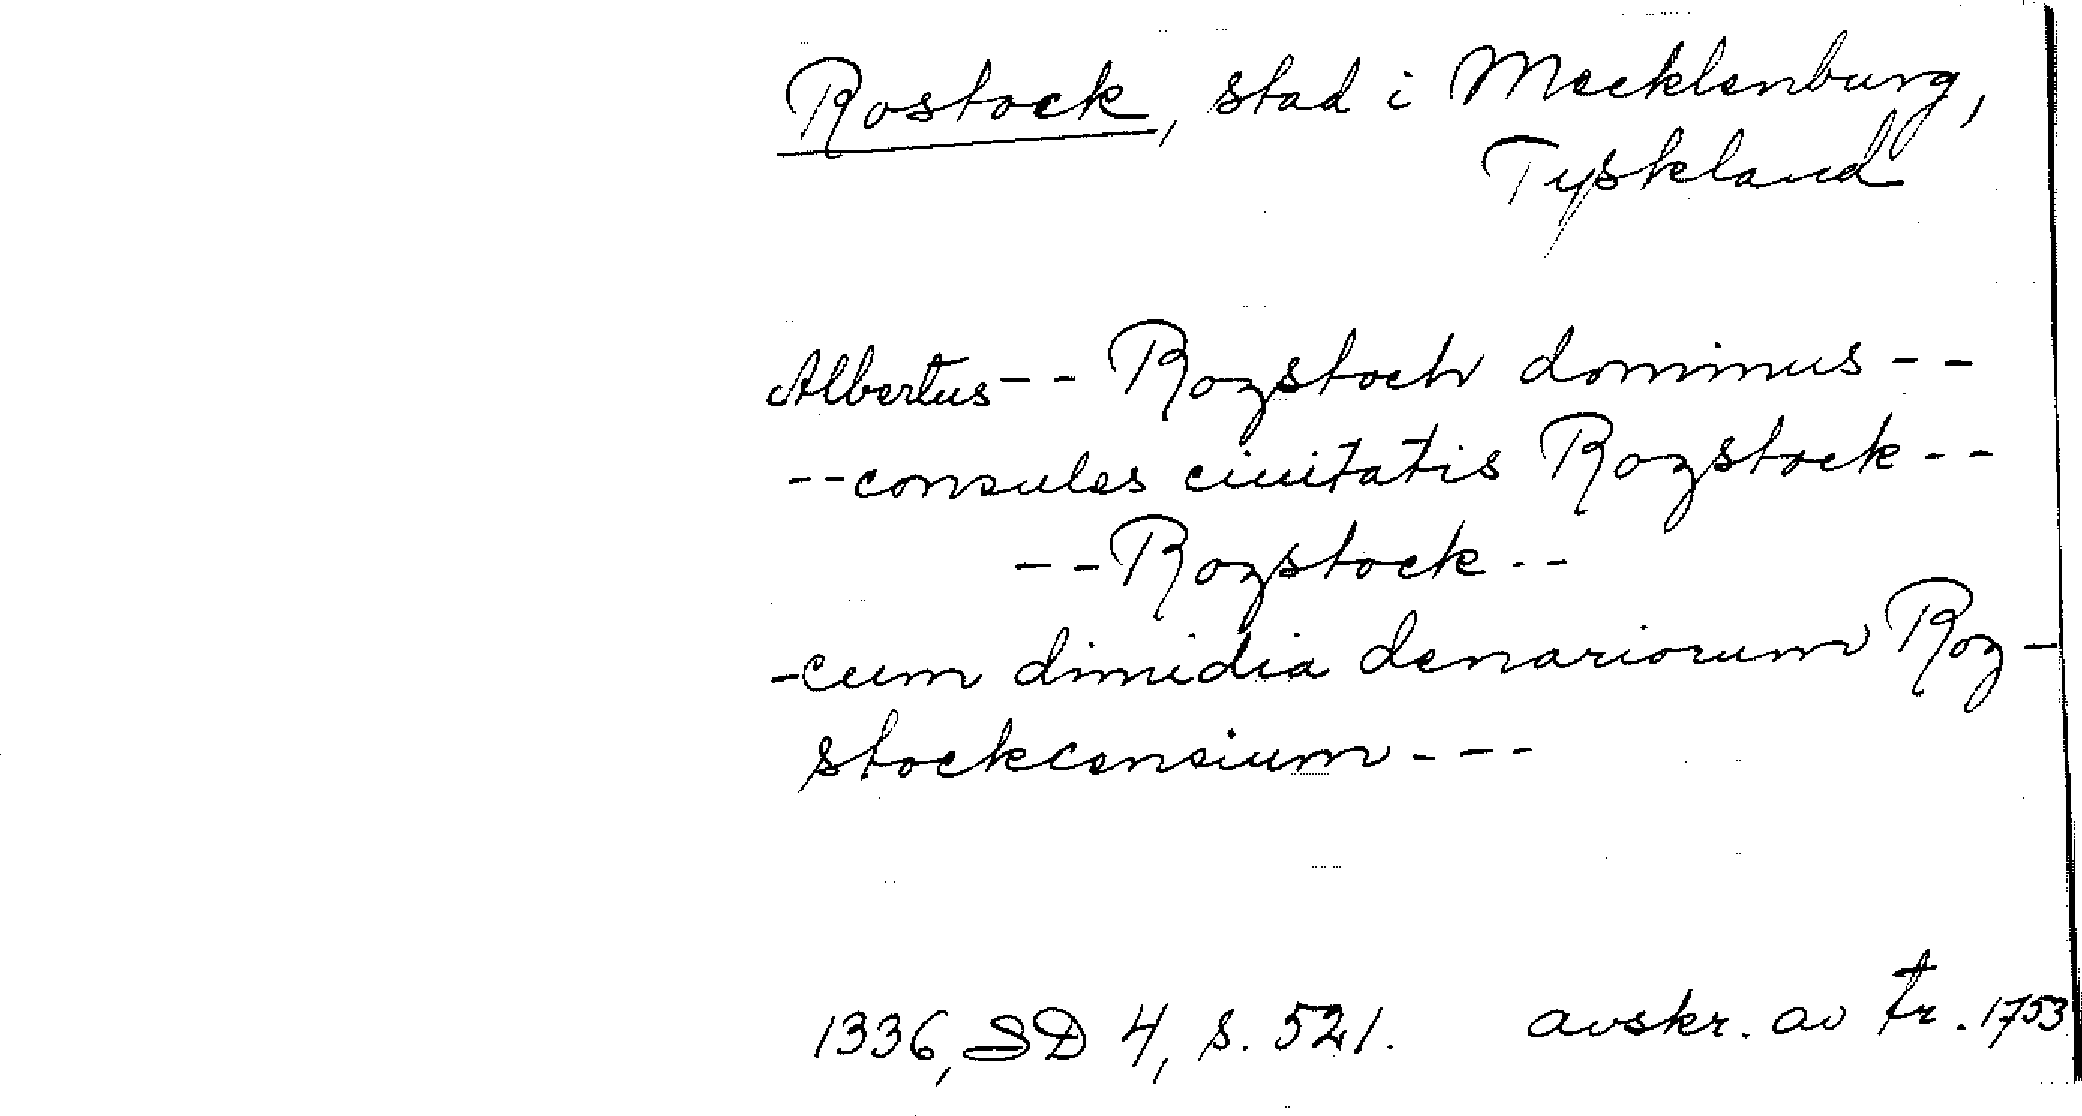 Rostock, stad i Mecklenburg,
Tyskland
Albertus -- Rozstoch dominus --
-- consules ciuitatis Rozstock --
-- Rozstock --
- cum dimidia denariorum Roz-
stockcensium ---
1336, SD 4, s. 521. avskr. av tr. 1753